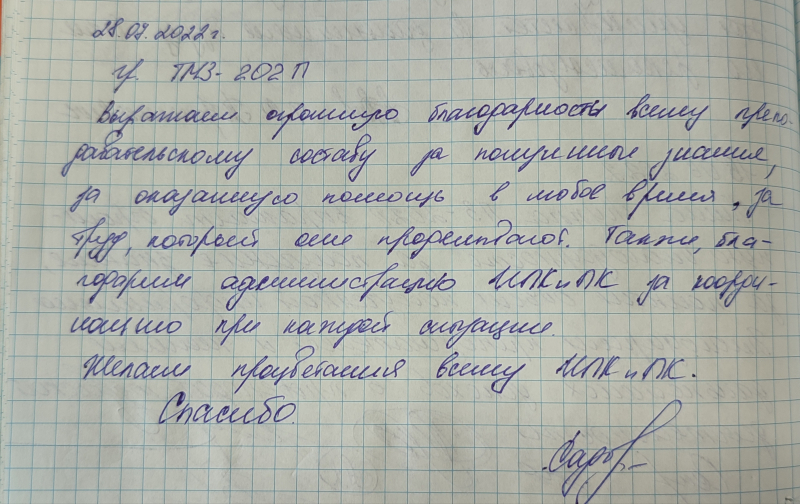 28.09.2022г.
гр. ТМЗ-202П
Выражаем огромную благодарность всему препо-
давательскому составу за полученные знания,
за оказанную помощь в любое время, за
труд, который они проделывают. Также, бла-
годарим администрацию ИПКиПК за коорди-
нацию при каждой ситуации.
Желаем процветания всему ИПКиПК.
Спасибо.